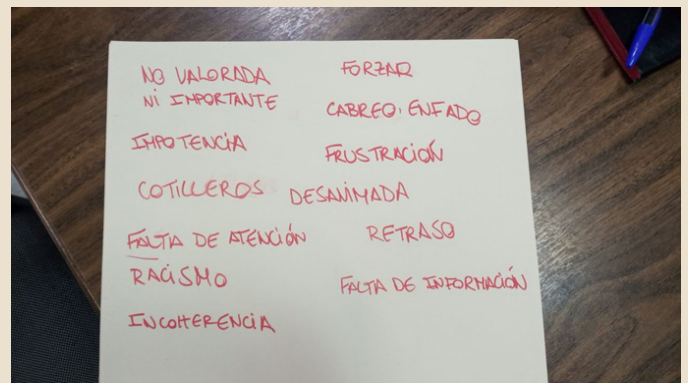 NO VALORADA
NI IMPORTANTE
IMPOTENCIA
COTILLEROS
FALTA DE ATENCIÓN
RACISMO
INCOHERENCIA
FORZAR
CABREO, ENFADO
FRUSTRACIÓN
DESANIMADA
RETRASO
FALTA DE INFORMACIÓN